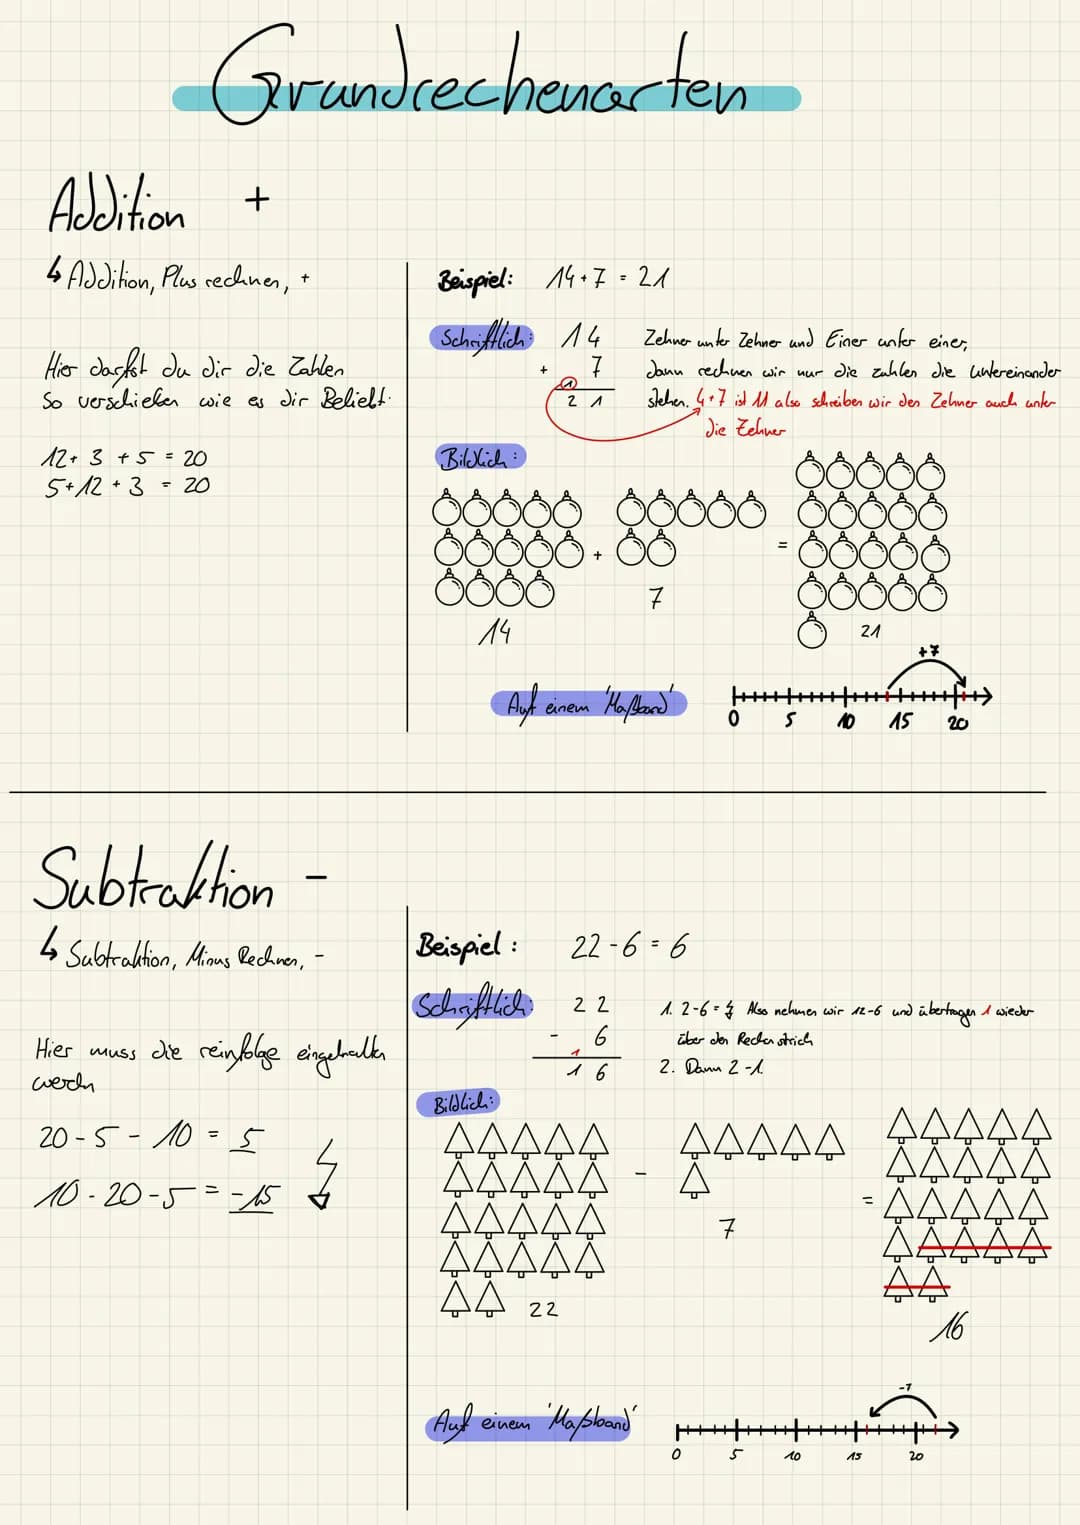 Grundrechenarten
Addition +
↳ Addition, Plus rechnen, +
Hier darfst du dir die Zahlen
So verschieben wie es dir Beliebt.
12+ 3 + 5 = 20
5+12 + 3 = 20
Beispiel: 14+7 = 21
Schriftlich: 14
+ 7
1
2 1
Zehner unter Zehner und Einer unter einer,
dann rechnen wir nur die zahlen die untereinander
stehen. 4+7 ist 11 also schreiben wir den Zehner auch unter
die Zehner
Bildlich:
+
=
14
7
21
Auf einem 'Maßband'
+7
0 5 10 15 20
Subtraktion -
↳ Subtraktion, Minus Rechnen, -
Hier muss die reinfolge eingehalten
werdn
20-5 - 10 = 5
10-20-5 = -15
Beispiel: 22-6 = 6
Schriftlich: 2 2
- 6
1
1 6
1. 2-6 = Also nehmen wir 12-6 und übertragen 1 wieder
über den Rechenstrich
2. Dann 2-1.
Bildlich:
-
=
22
7
16
Auf einem 'Maßband'
-7
0 5 10 15 20